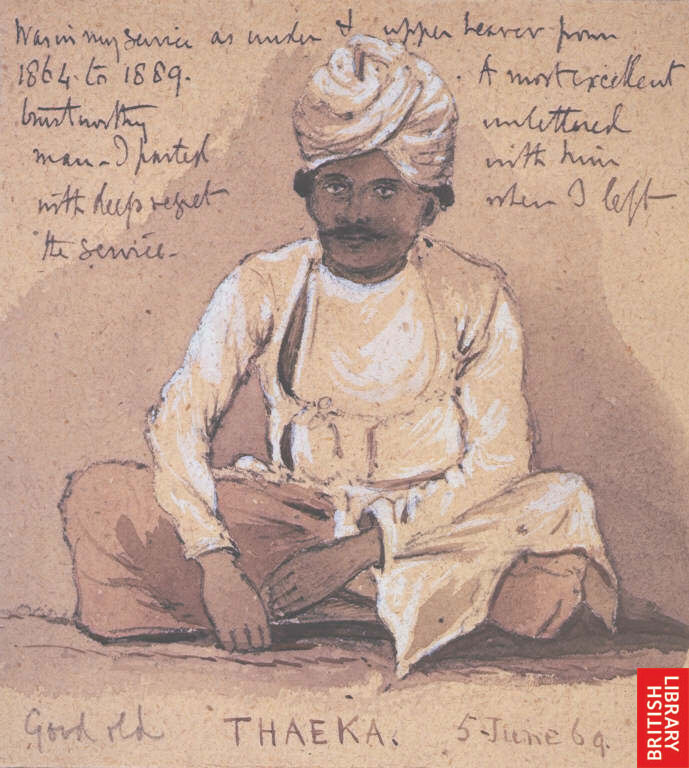 Was in my service as under & upper bearer from
1864 to 1889. A most excellent
trustworthy unlettered
man - I parted with him
with deep regret when I left
the service -
Good old THAEKA. 5 June 69.
BRITISH
LIBRARY